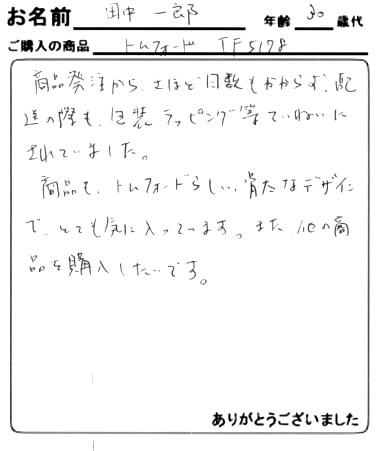 お名前 田中 一郎 年齢 30 歳代
ご購入の商品 トムフォード TF5178
商品発注から、さほど日数もかからず、配
送の際も、包装ラッピング等ていねいに
されていました。
商品も、トムフォードらしい、骨太なデザイン
で、とても気に入っています。また、他の商
品を購入したいです。
ありがとうございました